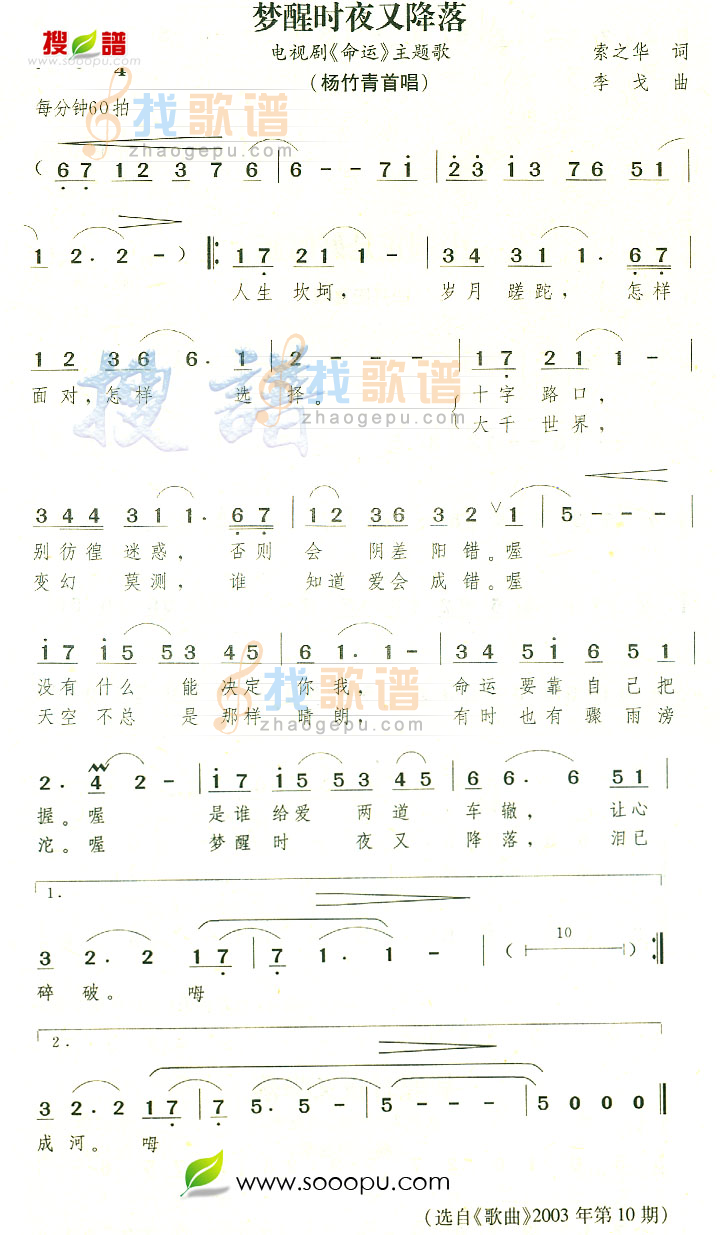 梦醒时夜又降落
搜谱
www.sooopu.com
电视剧《命运》主题歌 索之华 词
(杨竹青首唱) 李戈 曲
4
每分钟60拍
找歌谱
zhaogepu.com
( 6 7 1 2 3 7 6 | 6 - - 7 1 | 2 3 1 3 7 6 5 1 |
1 2 . 2 - ) ‖: 1 7 2 1 1 - | 3 4 3 1 1 . 6 7 |
人生 坎坷, 岁月 蹉跎, 怎样
1 2 3 6 6 . 1 | 2 - - - | 1 7 2 1 1 - |
面对,怎样 选 择。 十字 路口,
大千 世界,
搜谱
找歌谱
zhaogepu.com
3 4 4 3 1 1 . 6 7 | 1 2 3 6 3 2 ∨ 1 | 5 - - - |
别彷徨 迷惑, 否则 会 阴差 阳错。喔
变幻 莫测, 谁 知道 爱会 成错。喔
1 7 1 5 5 3 4 5 | 6 1 1 . 1 - | 3 4 5 1 6 5 1 |
没有 什么 能 决定 你我, 命运 要靠 自己 把
天空 不总 是 那样 晴朗, 有时 也有 骤雨 滂
找歌谱
zhaogepu.com
2 . 4 2 - | 1 7 1 5 5 3 4 5 | 6 6 . 6 5 1 |
握。喔 是谁 给爱 两道 车辙, 让心
沱。喔 梦醒 时 夜又 降落, 泪已
1.
3 2 . 2 1 7 | 7 1 . 1 - | ( 10 ) :‖
碎 破。 呣
2.
3 2 . 2 1 7 | 7 5 . 5 - | 5 - - - | 5 0 0 0 ‖
成 河。 呣
www.sooopu.com
(选自《歌曲》2003年第10期)